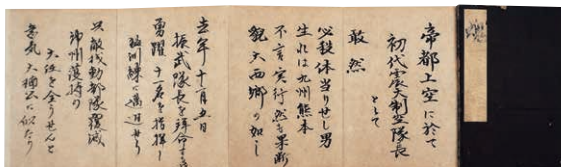 帝都上空に於て
初代震天制空隊長
として
敢然
必殺体当りせし男
生れは九州熊本
不言実行然も果断
貌大西郷の如し
去年十一月五日
振武隊長を拝命する
勇躍十二名を指揮し
猛訓練に邁進せり
只敵機動部隊覆滅
神州護持の
大任を全うせんと
意気大楠公に似たり